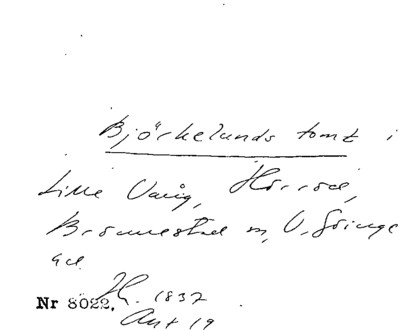 Björkelunds tomt i
Lille Vång, Hörröd,
Brönnestad m, V. Göinge
hd.
Nr 8022. 1832